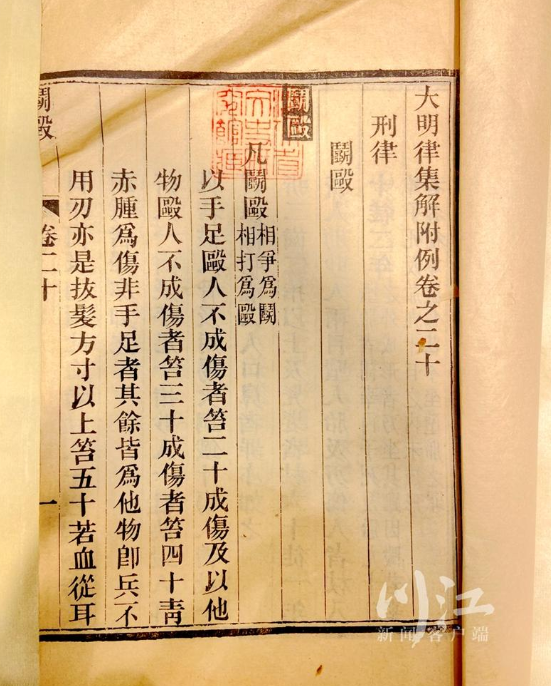 大明律集解附例卷之二十
刑律
鬬毆
鬬毆
凡鬬毆相爭爲鬬
相打爲毆
以手足毆人不成傷者笞二十成傷及以他
物毆人不成傷者笞三十成傷者笞四十靑
赤腫爲傷非手足者其餘皆爲他物卽兵不
用刃亦是拔髮方寸以上笞五十若血從耳
鬬毆
卷二十
一
川江
新闻客户端